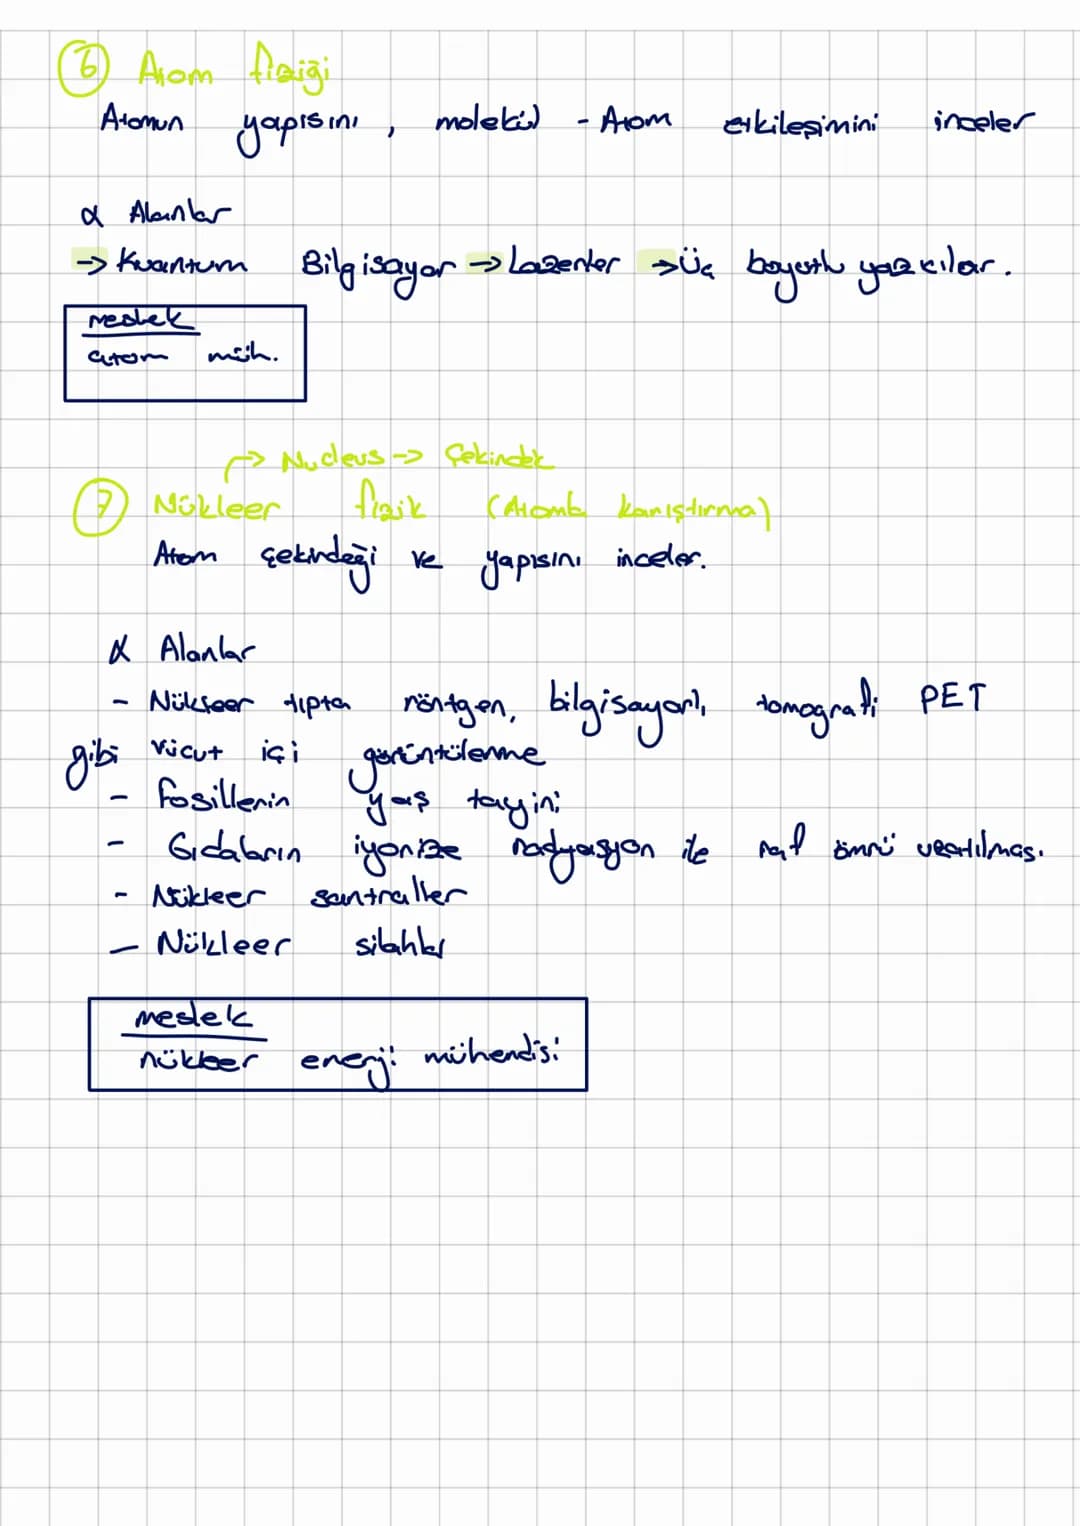 6 Atom fiziği
Atomun yapısını, molekül - Atom etkileşimini inceler
α Alanlar
→ Kuantum Bilgisayar → Lazerler → Üç boyutlu yazıcılar.
meslek
atom müh.
→ Nucleus → Çekirdek
7 Nükleer fizik (Atomla karıştırma)
Atom çekirdeği ve yapısını inceler.
α Alanlar
- Nükleer tıpta röntgen, bilgisayarlı, tomografi PET
gibi vücut içi görüntülenme
- Fosillerin yaş tayini
- Gıdaların iyonize radyasyon ile raf ömrü uzatılması.
- Nükleer santraller
- Nükleer silahlar
meslek
nükleer enerji mühendisi